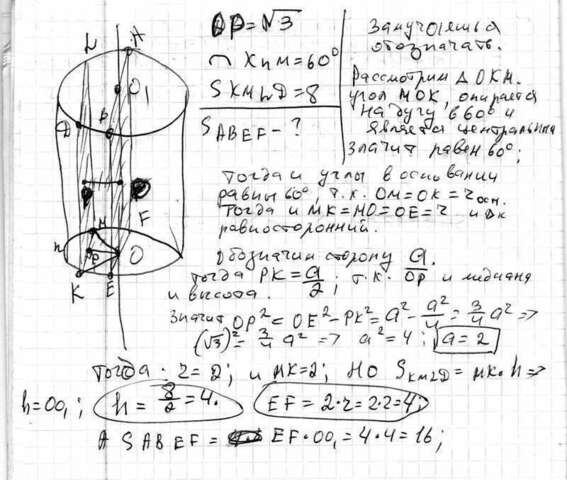 OP=√3
∩ KnM=60°
S KMLD=8
S ABEF - ?
Замучаешься
обозначать.
Рассмотрим Δ OKM.
угол MOK, опирается
на дугу в 60° и
является центральным
значит равен 60°;
Тогда и углы в основании
равны 60°, т.к. OM=OK=r осн.
Тогда и MK=MO=OE=r и Δк
равносторонний.
Обозначим сторону a.
Тогда PK=a/2; т.к. OP и медиана
и высота.
Значит OP²=OE²-PK²=a²-a²/4=3/4 a² =>
(√3)²=3/4 a² => a²=4; a=2
Тогда r=2; и MK=2; но S KMLD=MK·h =>
h=OO₁; h=8/2=4. EF=2·r=2·2=4;
А S ABEF = EF·OO₁=4·4=16;
L
A
O₁
D
B
F
M
n
P
O
K
E